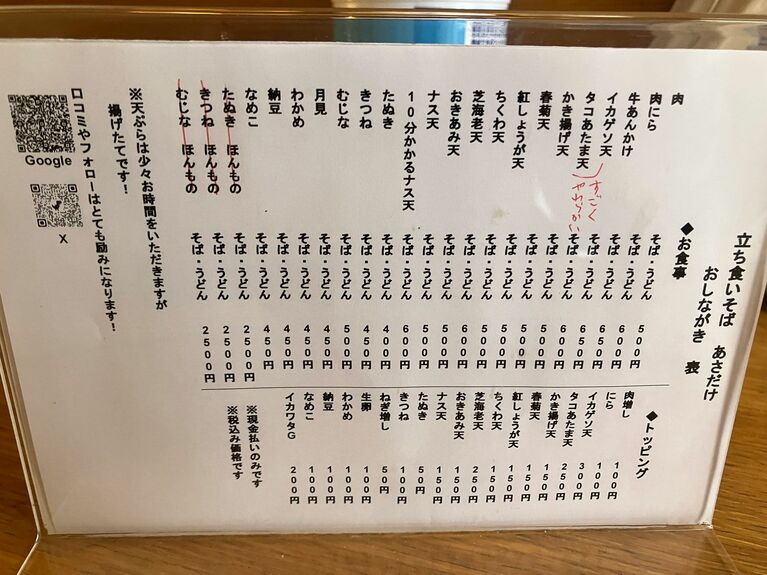 立ち食いそば あさだけ
おしながき 表
◆お食事
肉 そば・うどん 500円
肉にら そば・うどん 600円
牛あんかけ そば・うどん 600円
イカゲソ天 そば・うどん 650円
タコあたま天 そば・うどん 650円
すごくやわらかい
かき揚げ天 そば・うどん 600円
春菊天 そば・うどん 500円
紅しょうが天 そば・うどん 500円
ちくわ天 そば・うどん 500円
芝海老天 そば・うどん 600円
おきあみ天 そば・うどん 500円
ナス天 そば・うどん 500円
10分かかるナス天 そば・うどん 600円
たぬき そば・うどん 400円
きつね そば・うどん 450円
むじな そば・うどん 500円
月見 そば・うどん 450円
わかめ そば・うどん 450円
納豆 そば・うどん 450円
なめこ そば・うどん 450円
たぬき ほんもの そば・うどん 2500円
きつね ほんもの そば・うどん 2500円
むじな ほんもの そば・うどん 2500円
※天ぷらは少々お時間をいただきますが
揚げたてです！
口コミやフォローはとても励みになります！
Google
X
◆トッピング
肉増し 100円
にら 100円
イカゲソ天 300円
タコあたま天 250円
かき揚げ天 150円
春菊天 150円
紅しょうが天 150円
ちくわ天 150円
芝海老天 250円
おきあみ天 150円
ナス天 150円
たぬき 50円
きつね 100円
ねぎ増し 50円
生卵 100円
わかめ 100円
納豆 100円
なめこ 100円
イカワタG 200円
※現金払いのみです
※税込み価格です